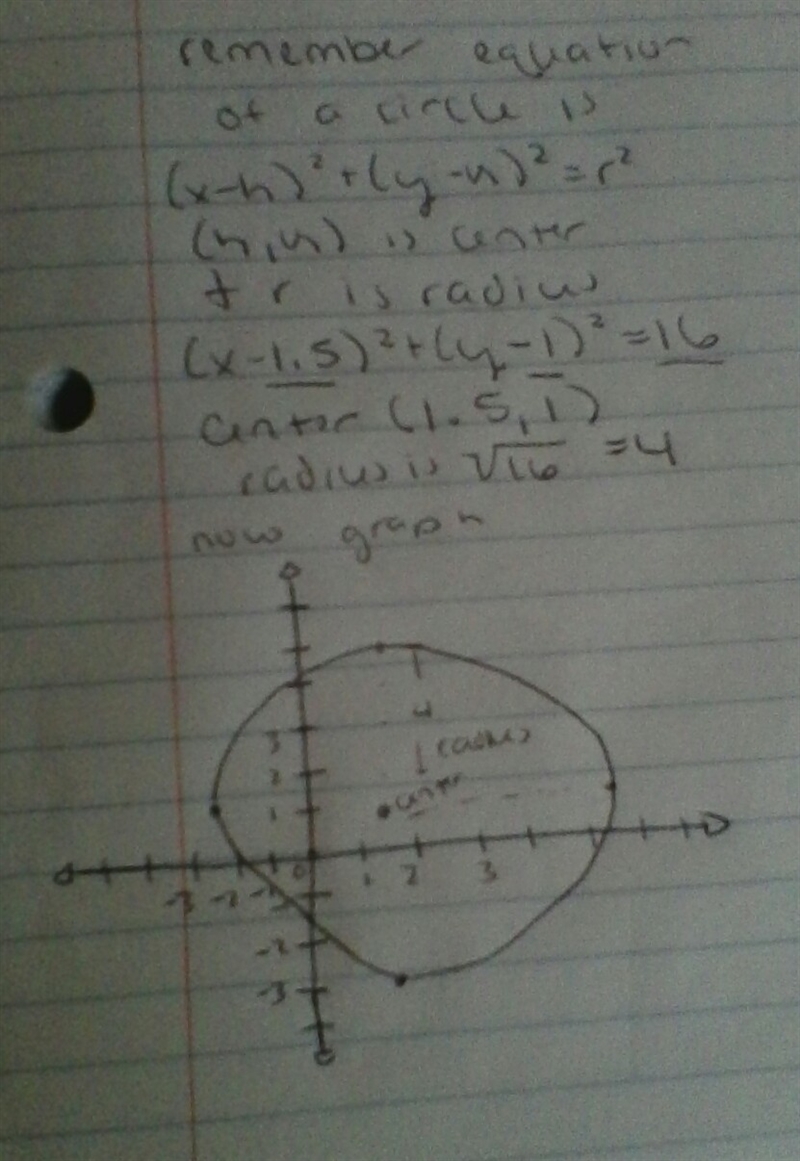 remember equation
of a circle is
(x-h)² + (y-k)² = r²
(h,k) is center
+ r is radius
(x-1.5)² + (y-1)² = 16
center (1.5,1)
radius is √16 = 4
now graph
4
3
radius
2
center
1
0
1
2
3
-3
-2
-1
-2
-3